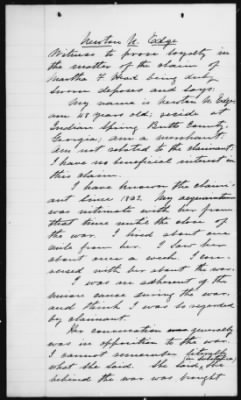 Newton N. Edge
Witness to prove loyalty in
the matter of the claim of
Martha F. Head being duly
sworn deposes and says:
My name is Newton N Edge
am 45 years old; reside at
Indian Spring Butts County,
Georgia; am a merchant.
Am not related to the claimant:
I have no beneficial interest in
this claim.
I have known the claim-
ant since 1852. My acquaintance
was intimate with her from
that time until the close of
the war. I lived about one
mile from her. I saw her
about once a week. I con-
versed with her about the war.
I was an adherent of the
union cause during the war,
and think I was so regarded
by claimant.
Her conversation was generally
was in opposition to the war.
I cannot remember
what she said. She said, she
believed the war was brought